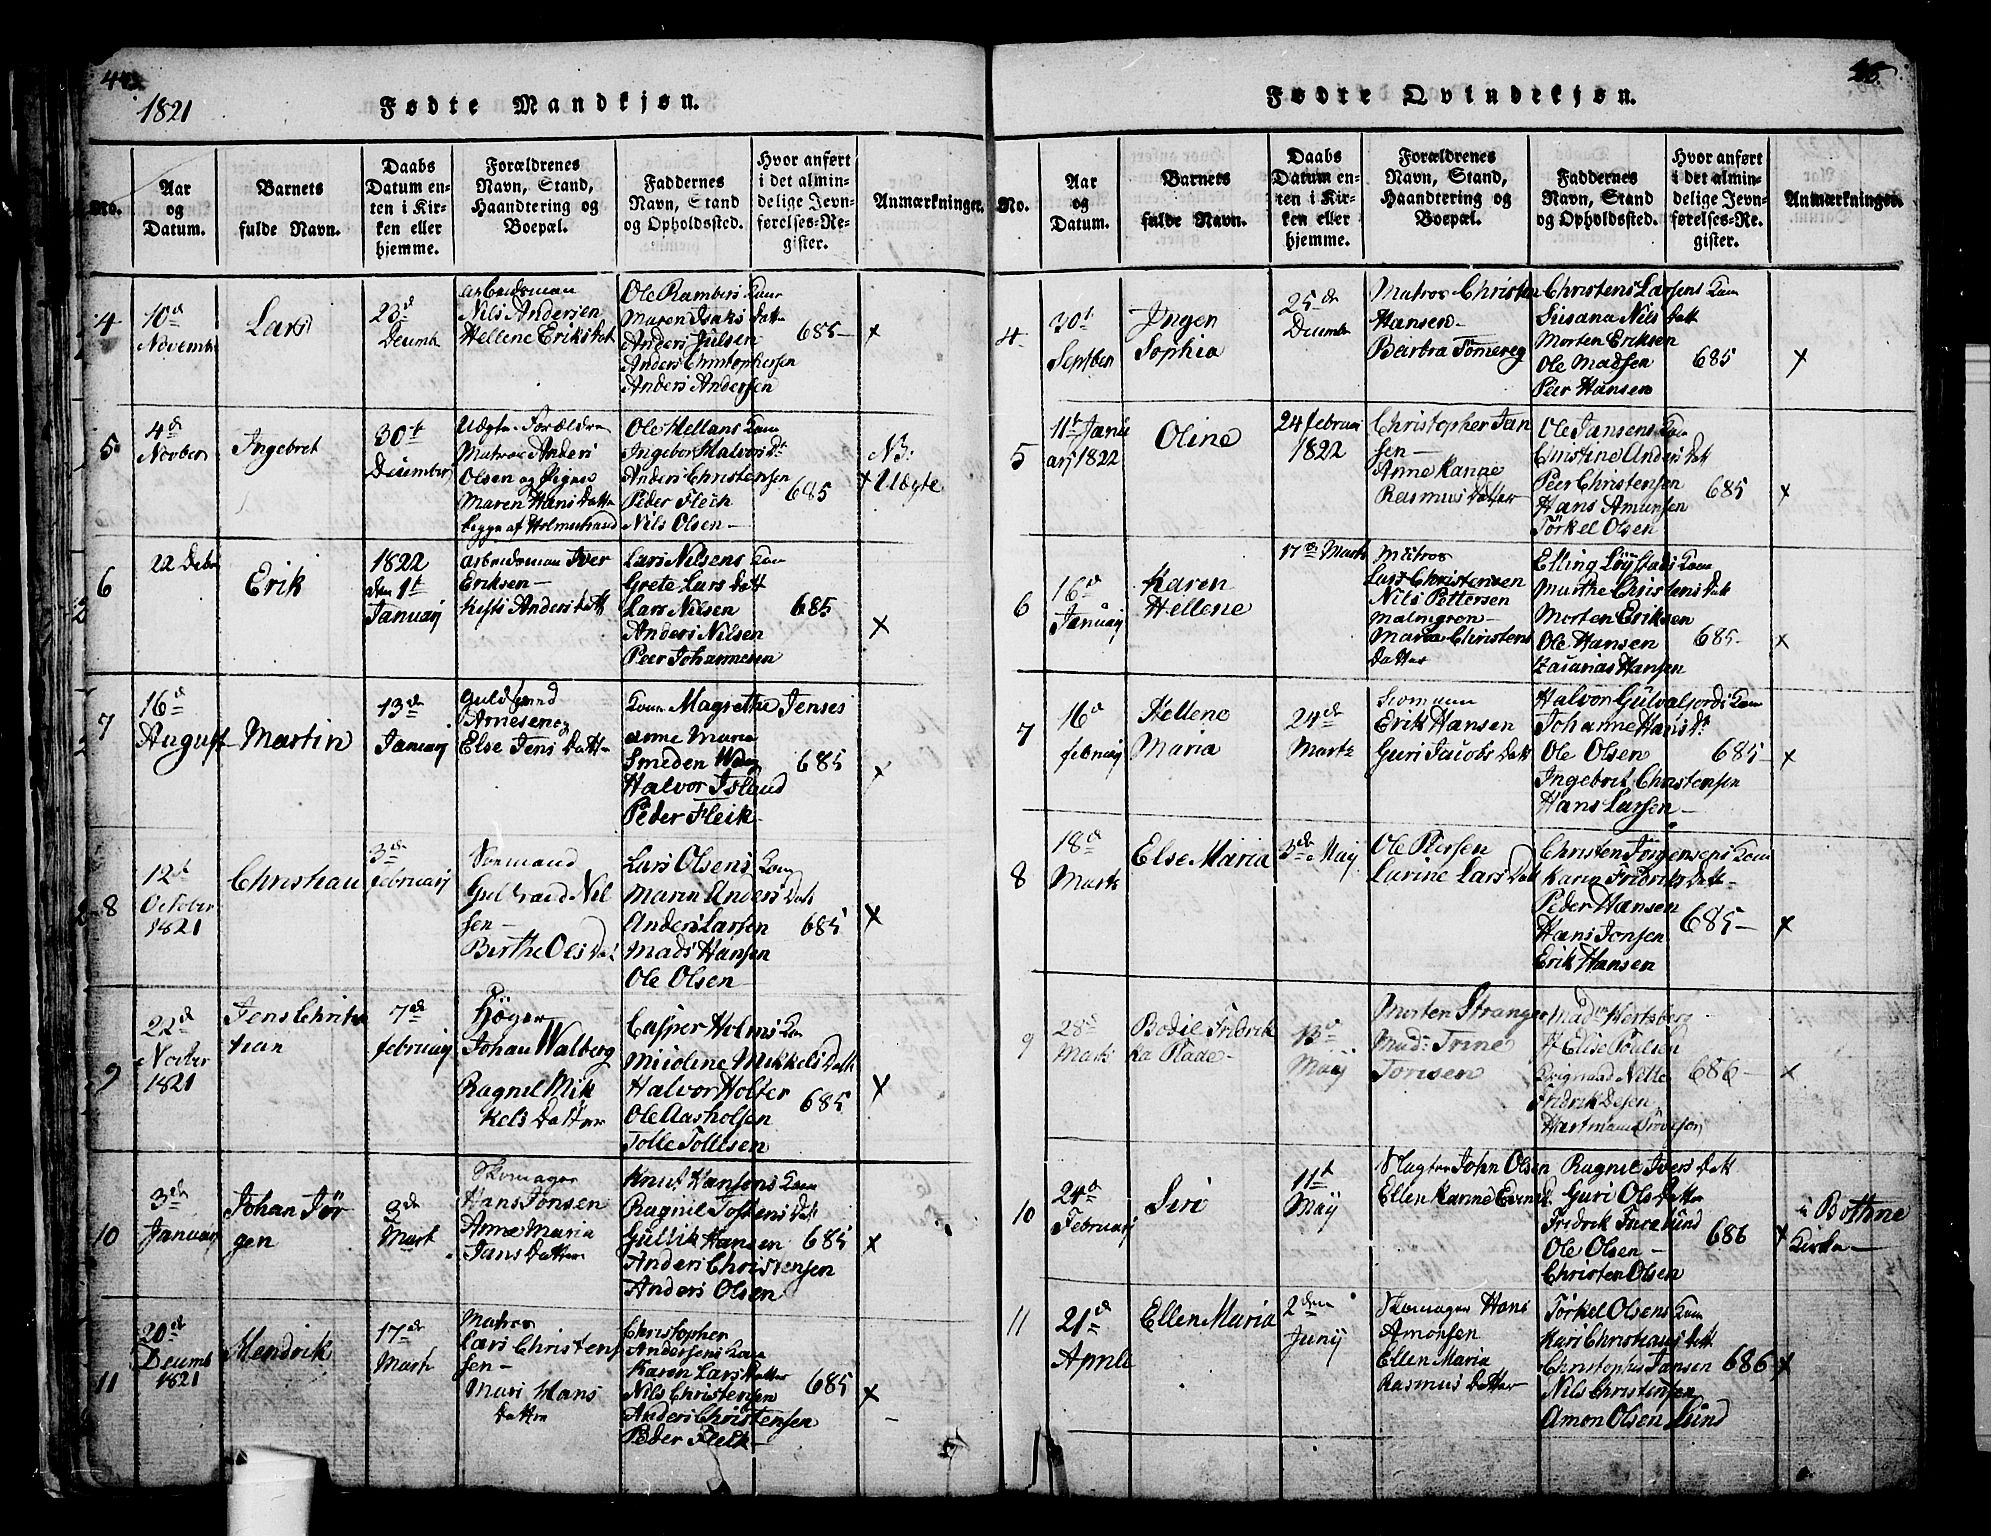 44
1821
Fødte Mandkjøn.
No.
Aar
og
Datum.
Barnets
fulde Navn.
Daabs
Datum en-
ten i Kir-
ken eller
hjemme.
Forældrenes
Navn, Stand,
Haandtering og
Boepæl.
Faddernes
Navn, Stand
og Opholdssted.
Hvor anført
i det almin-
delige Jevn-
førelses-Re-
gister.
Anmærkninger.
4
10d
Novemb
Lars
23d
Decemb
arbeidsman
Nils Andersen
Hellene Eriks Dat
Ole Ramberg Kone
Maren Isaks Datt
Anders Julsen
Anders Christophersen
Anders Andersen
685
x
5
4d
Novber
Ingebret
30t
December
Uægte Forældre
Matros Anders
Olsen og Pigen
Maren Hans Datter
begge af Holmestrand
Ole Hellans Kone
Ingebor Halvors Dt
Anders Christensen
Peder Fleik
Nils Olsen
685
NB:
x Uægte
6
22 Debr
Erik
1822
den 1t
Januarj
arbeidsman Iver
Eriksen
Kesti Anders Datt
Lars Nilsens Kone
Grete Lars Datt
Lars Nilsen
Anders Nilsen
Peer Johannesen
685
x
7
16d
August
Martin
13de
Januarj
Guldsmed
Arnesen og
Else Jens Datter
Kone Magrethe Jenses
Anne Maria
Smeden Wang
Halvor Island
Peder Fleik
685
x
8
12t
October
1821
Christian
3de
februarj
Sømand
Gulbrand Nil
sen
Berthe Ols Dat
Lars Olsens Kone
Maren Anders Datt
Anders Larsen
Mads Hansen
Ole Olsen
685
x
9
22d
Nocber
1821
Jens Christ
han
7de
februarj
Høger
Johan Walberg
Ragnil Mik
kels Datter
Casper Holms Kone
Nicoline Mikkels Datt
Halvor Holter
Ole Aasholsen
Tolle Tollesen
685
x
10
3de
Januarj
Johan Jør
gen
3de
Mart
Skomager
Hans Jonsen
Anne Maria
Jans Datter
Knut Hansens Kone
Ragnil Tostens Dat
Gullik Hansen
Anders Christensen
Anders Olsen
685
x
11
20de
Decemb
1821
Hendrik
17de
Marts
Matros
Lars Christen
sen
Mari Hans
Datter
Christopher
Andersens Kone
Karen Lars Datter
Nils Christensen
Anders Christensen
Peder Fleik
685
x
45.
Fødte Qvindekjøn.
No.
Aar
og
Datum.
Barnets
fulde Navn.
Daabs
Datum en-
ten i Kir-
ken eller
hjemme.
Forældrenes
Navn, Stand,
Haandtering og
Boepæl.
Faddernes
Navn, Stand
og Opholdssted.
Hvor anført
i det almin-
delige Jevn-
førelses-Re-
gister.
Anmærkninger.
4
30t
Septber
Ingen
Sophia
25de
Decemb
Matros Christen
Hansen
Barbra Tømereg
Christens Larsens Kone
Susana Nils Datt
Morten Eriksen
Ole Madsen
Peer Hansen
685
x
5
11t Janu
arj 1822
Oline
24 februar
1822
Christopher Jan
sen
Anne Kange
Rasmus Datter
Ole Jansens Kone
Christine Anders Datt
Peer Christensen
Hans Amunsen
Torkel Olsen
685
x
6
16d
Januarj
Karen
Hellene
17de Marts
Matros
Lars Christensen
Nils Pettersen
Malmgren
Maria Christens
Datter
Elling Løystads Kone
Marthe Christens Datt
Morten Eriksen
Ole Hansen
Zacarias Hansen
685
x
7
16d
februarj
Hellene
Maria
24de
Marts
Sømann
Erik Hansen
Guri Jacobs Datt
Halvor Gulvalfjords Kone
Johanne Hans Dt
Ole Olsen
Ingebrit Christensen
Hans Larsen
685
x
8
18d
Marts
Else Maria
3de May
Ole Persen
Larine Lars Datt
Christen Jorgensens Kone
Karen Fridriks Datter
Peder Hansen
Hans Jonsen
Erik Hansen
685
x
9
28d
Marts
Bodil Fridrik
ka Plade
13d
Maij
Morten Stranger
Mad: Trine
Torisen
Madm Hertsberg
J Elise Poulsen
Fridrik Desen
686
x
10
24d
Februarj
Siri
11t
Maij
Slagter John Olsen
Ellen Karine Evensd
Ragnil Ivers Datt
Guri Ols Datter
Fridrik Fuurelund
Ole Olsen
Christen Olsen
686
x
i Bothne
Kirke
11
21d
Aprili
Ellen Maria
2den
Junij
Skomager Hans
Amonsen
Ellen Maria
Rasmus Datter
Torkel Olsens Kone
Kari Christians Datt
Christopher Jansen
Nils Christensen
Amon Olsen Lund
686
x